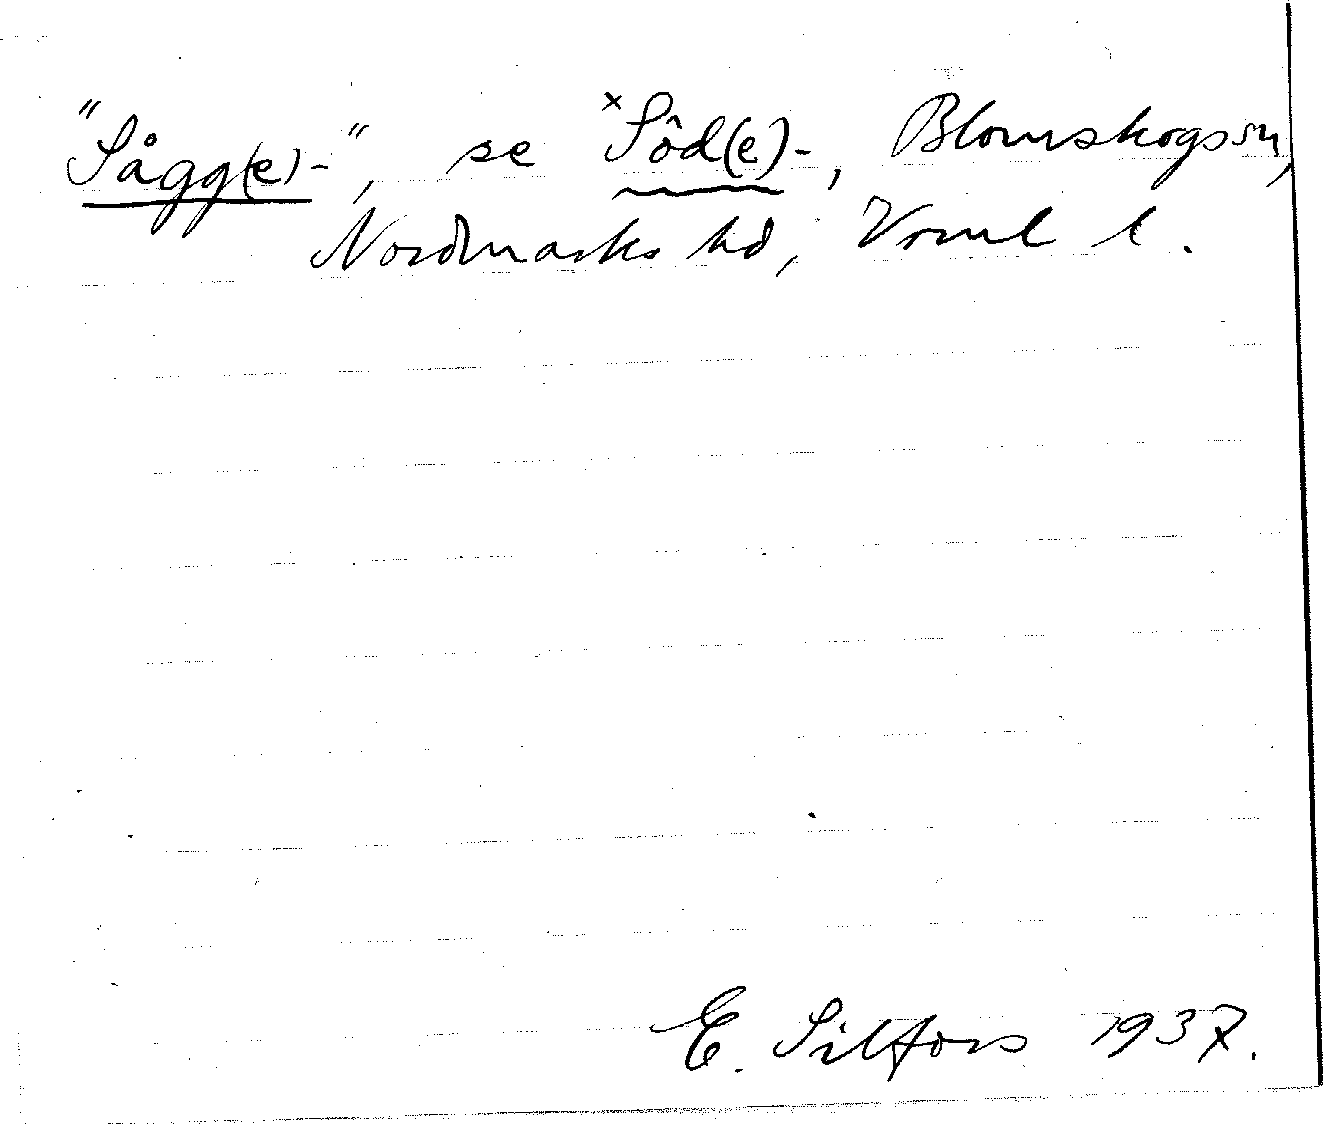 "Sågg(e)-", se ˣSôd(e)-, Blomskogs sn,
Nordmarks hd, Vrml l.
E. Silfors 1937.